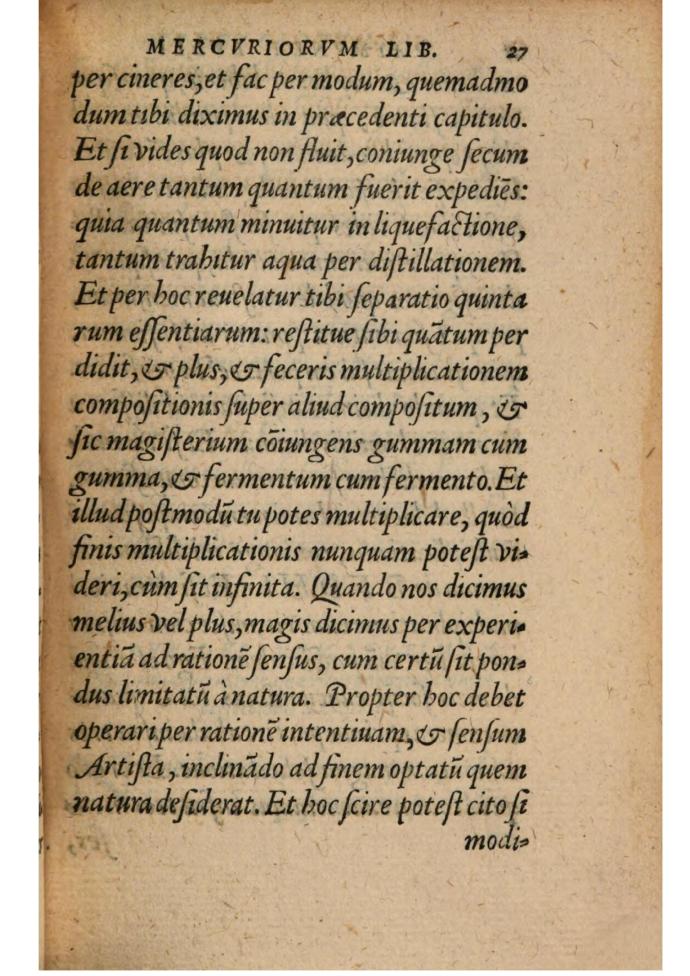 MERCVRIORVM LIB. 27
per cineres, et fac per modum, quemadmo
dum tibi diximus in præcedenti capitulo.
Et ſi vides quod non fluit, coniunge ſecum
de aere tantum quantum fuerit expediēs:
quia quantum minuitur in liquefactione,
tantum trahitur aqua per diſtillationem.
Et per hoc reuelatur tibi ſeparatio quinta
rum eſſentiarum: reſtitue ſibi quātum per
didit, & plus, & feceris multiplicationem
compoſitionis ſuper aliud compoſitum, &
ſic magiſterium cōiungens gummam cum
gumma, & fermentum cum fermento. Et
illud poſtmodū tu potes multiplicare, quòd
finis multiplicationis nunquam poteſt vi-
deri, cùm ſit infinita. Quando nos dicimus
melius vel plus, magis dicimus per experi-
entiā ad rationē ſenſus, cum certū ſit pon-
dus limitatū à natura. Propter hoc debet
operari per rationē intentiuam, & ſenſum
Artiſta, inclinādo ad finem optatū quem
natura deſiderat. Et hoc ſcire poteſt cito ſi
modi-